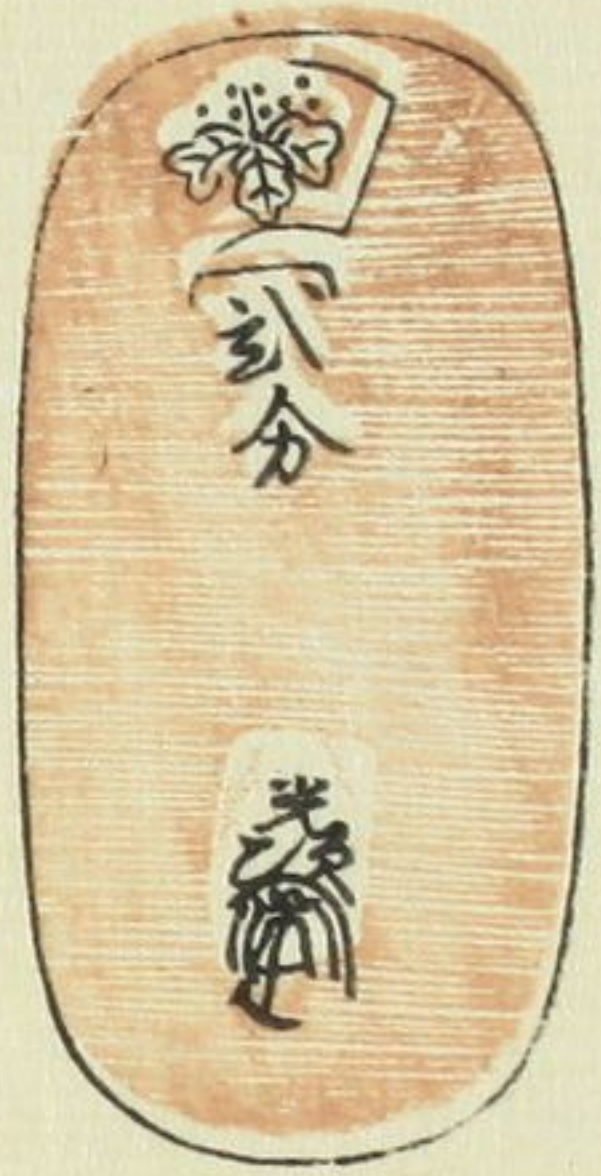 弐分
光次